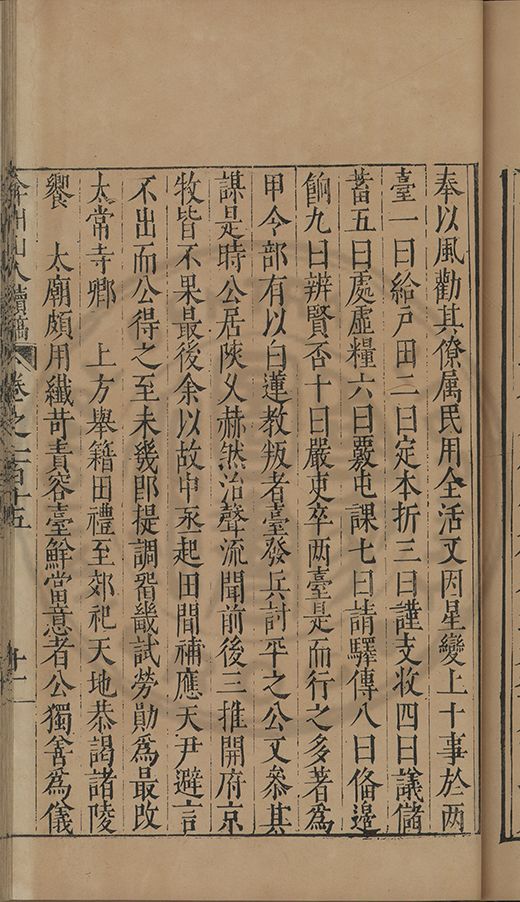 奉以風勸其僚属民用全活又因星變上十事於两
臺一曰給戸田二曰定本折三曰謹支收四曰議儲
蓄五曰處虛糧六曰覈屯課七曰請驛傳八曰俻邉
餉九曰辨賢否十曰嚴吏卒两臺是而行之多著爲
甲令部有以白蓮教叛者臺發兵討平之公又叅其
謀是時公居陜乂赫然治聲流聞前後三推開府京
牧皆不果最後余以故中丞起田間補應天尹避言
不出而公得之至未幾卽提調畱畿試勞勛爲最改
太常寺卿　上方舉籍田禮至郊祀天地恭謁諸陵
饗　太廟頗用纎苛責容臺鮮當意者公獨善爲儀
弇州山人續稿　卷之一百十五　十二